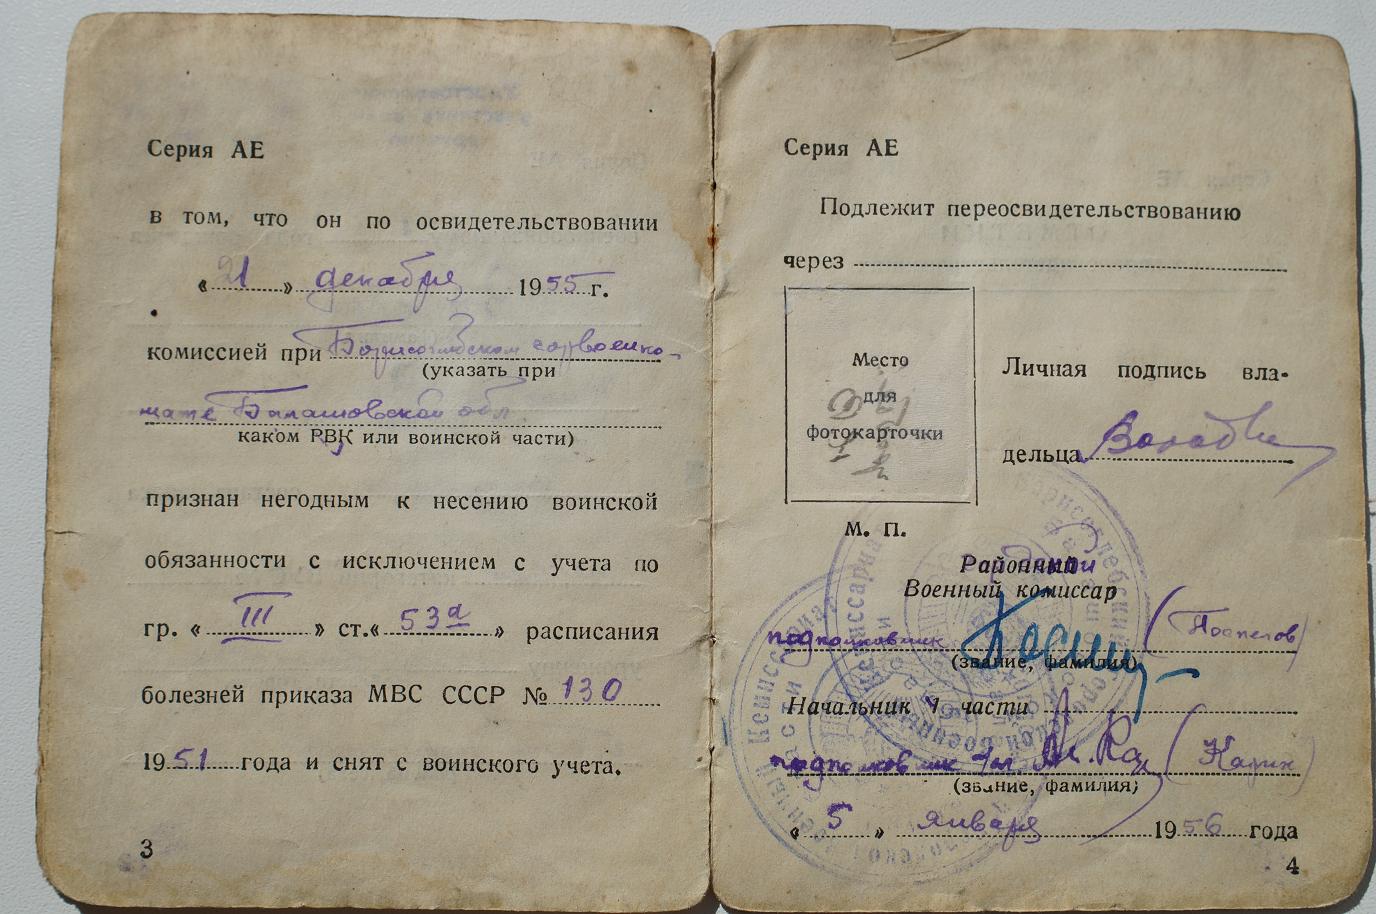 Серия АЕ
в том, что он по освидетельствовании
« 21 » декабря 1955 г.
комиссией при Борисоглебском горвоенко-
(указать при
мате Балашовской обл
каком РВК или воинской части)
признан негодным к несению воинской
обязанности с исключением с учета по
гр. « III » ст. « 53а » расписания
болезней приказа МВС СССР № 130
1951 года и снят с воинского учета.
3
Серия АЕ
Подлежит переосвидетельствованию
через
Место
для
фотокарточки
Личная подпись вла-
дельца
М. П.
Районный
Военный комиссар
подполковник (Поспелов)
(звание, фамилия)
Начальник 4 части
подполковник
(звание, фамилия)
« 5 » января 1956 года
4